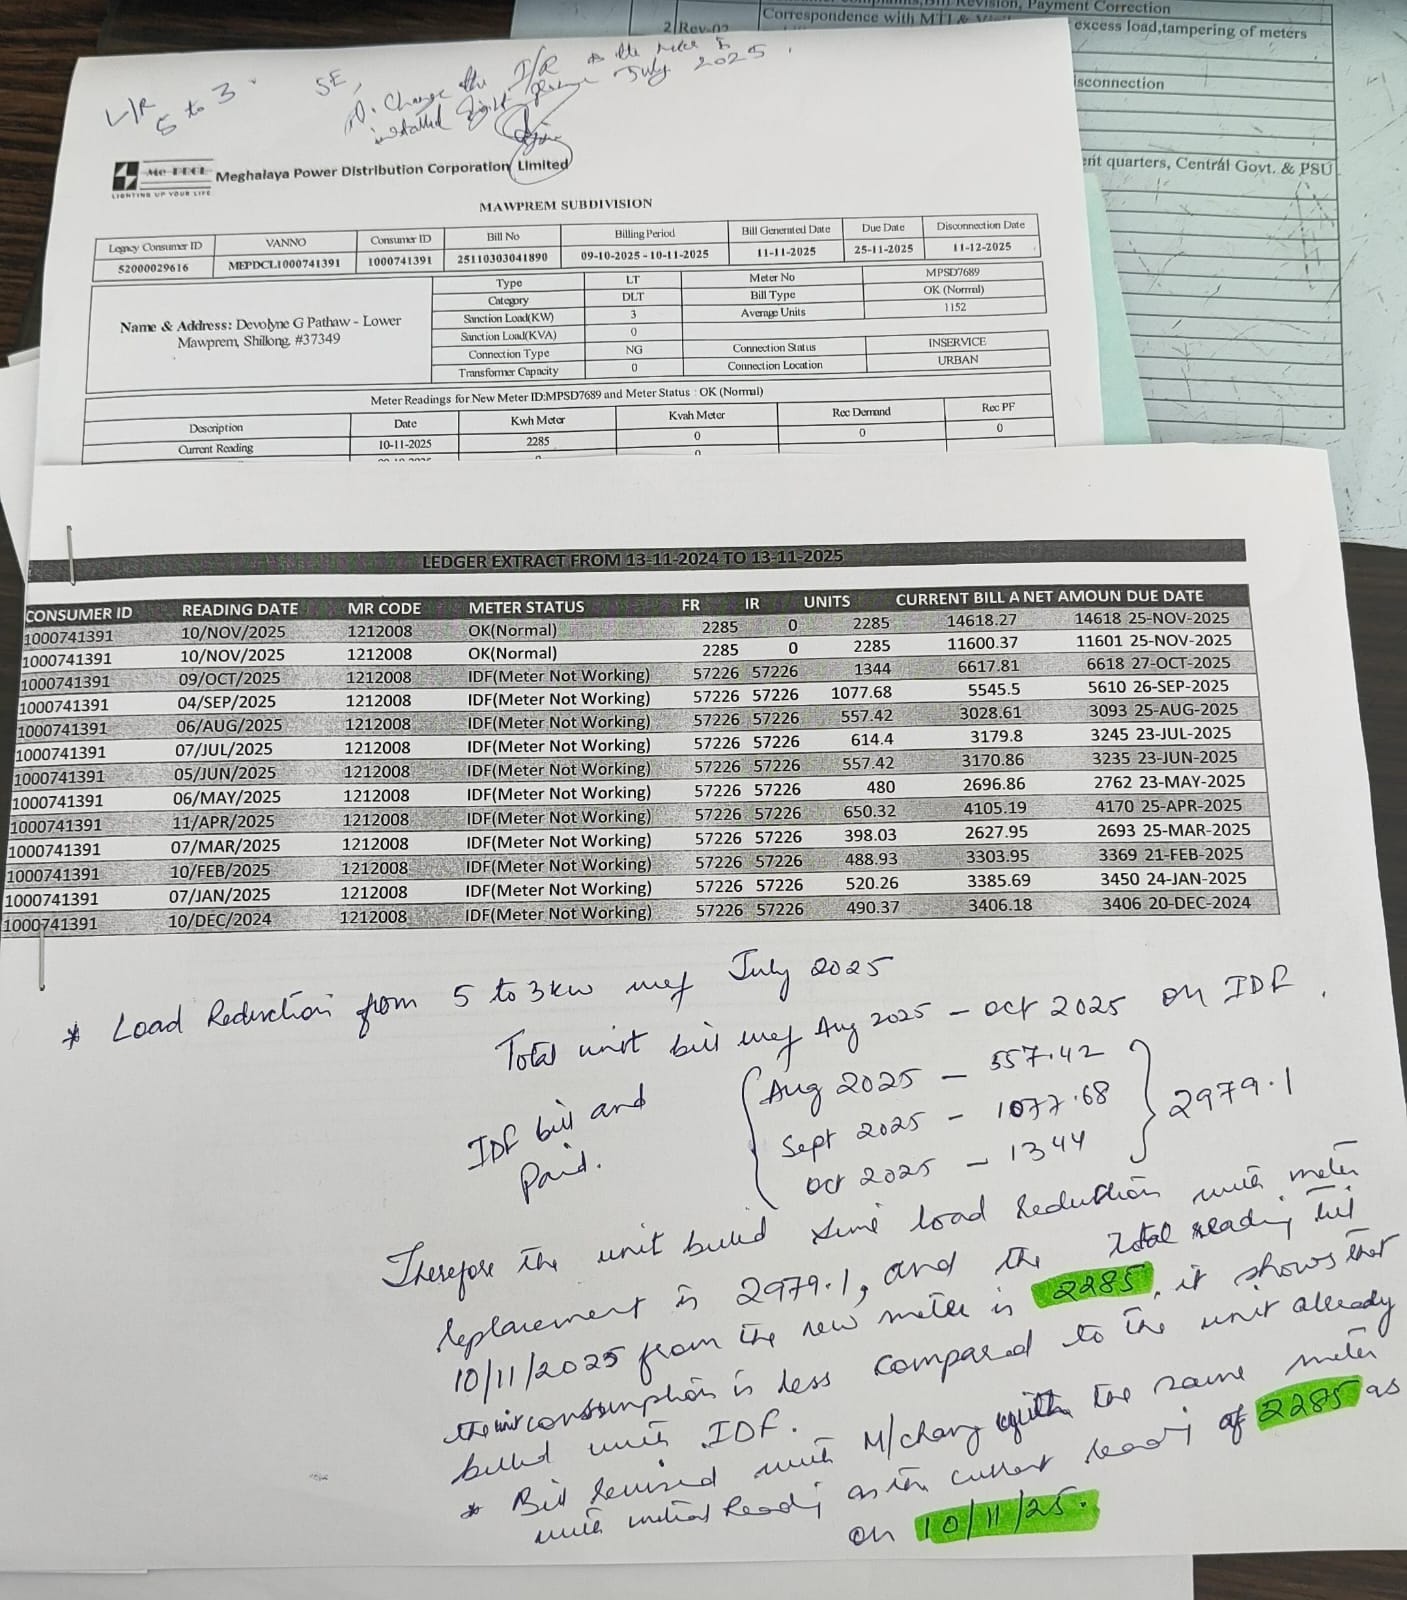 Bill Revision, Payment Correction
2 Rev-02
Correspondence with MTI &
excess load,tampering of meters
isconnection
ent quarters, Central Govt. & PSU
L/R
5 to 3
SE,
Change the I/R as the meter is
installed right from July 2025.
Me PDCL
LIGHTING UP YOUR LIFE
Meghalaya Power Distribution Corporation Limited
MAWPREM SUBDIVISION
Legacy Consumer ID VANNO Consumer ID Bill No Billing Period Bill Generated Date Due Date Disconnection Date
52000029616 MEPDCL1000741391 1000741391 25110303041890 09-10-2025 - 10-11-2025 11-11-2025 25-11-2025 11-12-2025
Name & Address: Devolyne G Pathaw - Lower
Mawprem, Shillong, #37349
Type LT Meter No MPSD7689
Category DLT Bill Type OK (Normal)
Sanction Load(KW) 3 Average Units 1152
Sanction Load(KVA) 0
Connection Type NG Connection Status INSERVICE
Transformer Capacity 0 Connection Location URBAN
Meter Readings for New Meter ID:MPSD7689 and Meter Status : OK (Normal)
Description Date Kwh Meter Kvah Meter Rec Demand Rec PF
Current Reading 10-11-2025 2285 0 0 0
LEDGER EXTRACT FROM 13-11-2024 TO 13-11-2025
CONSUMER ID READING DATE MR CODE METER STATUS FR IR UNITS CURRENT BILL A NET AMOUN DUE DATE
1000741391 10/NOV/2025 1212008 OK(Normal) 2285 0 2285 14618.27 14618 25-NOV-2025
1000741391 10/NOV/2025 1212008 OK(Normal) 2285 0 2285 11600.37 11601 25-NOV-2025
1000741391 09/OCT/2025 1212008 IDF(Meter Not Working) 57226 57226 1344 6617.81 6618 27-OCT-2025
1000741391 04/SEP/2025 1212008 IDF(Meter Not Working) 57226 57226 1077.68 5545.5 5610 26-SEP-2025
1000741391 06/AUG/2025 1212008 IDF(Meter Not Working) 57226 57226 557.42 3028.61 3093 25-AUG-2025
1000741391 07/JUL/2025 1212008 IDF(Meter Not Working) 57226 57226 614.4 3179.8 3245 23-JUL-2025
1000741391 05/JUN/2025 1212008 IDF(Meter Not Working) 57226 57226 557.42 3170.86 3235 23-JUN-2025
1000741391 06/MAY/2025 1212008 IDF(Meter Not Working) 57226 57226 480 2696.86 2762 23-MAY-2025
1000741391 11/APR/2025 1212008 IDF(Meter Not Working) 57226 57226 650.32 4105.19 4170 25-APR-2025
1000741391 07/MAR/2025 1212008 IDF(Meter Not Working) 57226 57226 398.03 2627.95 2693 25-MAR-2025
1000741391 10/FEB/2025 1212008 IDF(Meter Not Working) 57226 57226 488.93 3303.95 3369 21-FEB-2025
1000741391 07/JAN/2025 1212008 IDF(Meter Not Working) 57226 57226 520.26 3385.69 3450 24-JAN-2025
1000741391 10/DEC/2024 1212008 IDF(Meter Not Working) 57226 57226 490.37 3406.18 3406 20-DEC-2024
* Load Reduction from 5 to 3kw wef July 2025
Total unit bill wef Aug 2025 - Oct 2025 on IDF.
IDF bill and
Paid.
Aug 2025 - 557.42
Sept 2025 - 1077.68
Oct 2025 - 1344
2979.1
Therefore the unit billed since load Reduction with meter
replacement is 2979.1, and the Total reading till
10/11/2025 from the new meter is 2285, it shows that
the unit consumption is less compared to the unit already
billed with IDF.
* Bill revised with M/chang with the same meter
with initial Readi as the current readi of 2285 as
on 10/11/25.